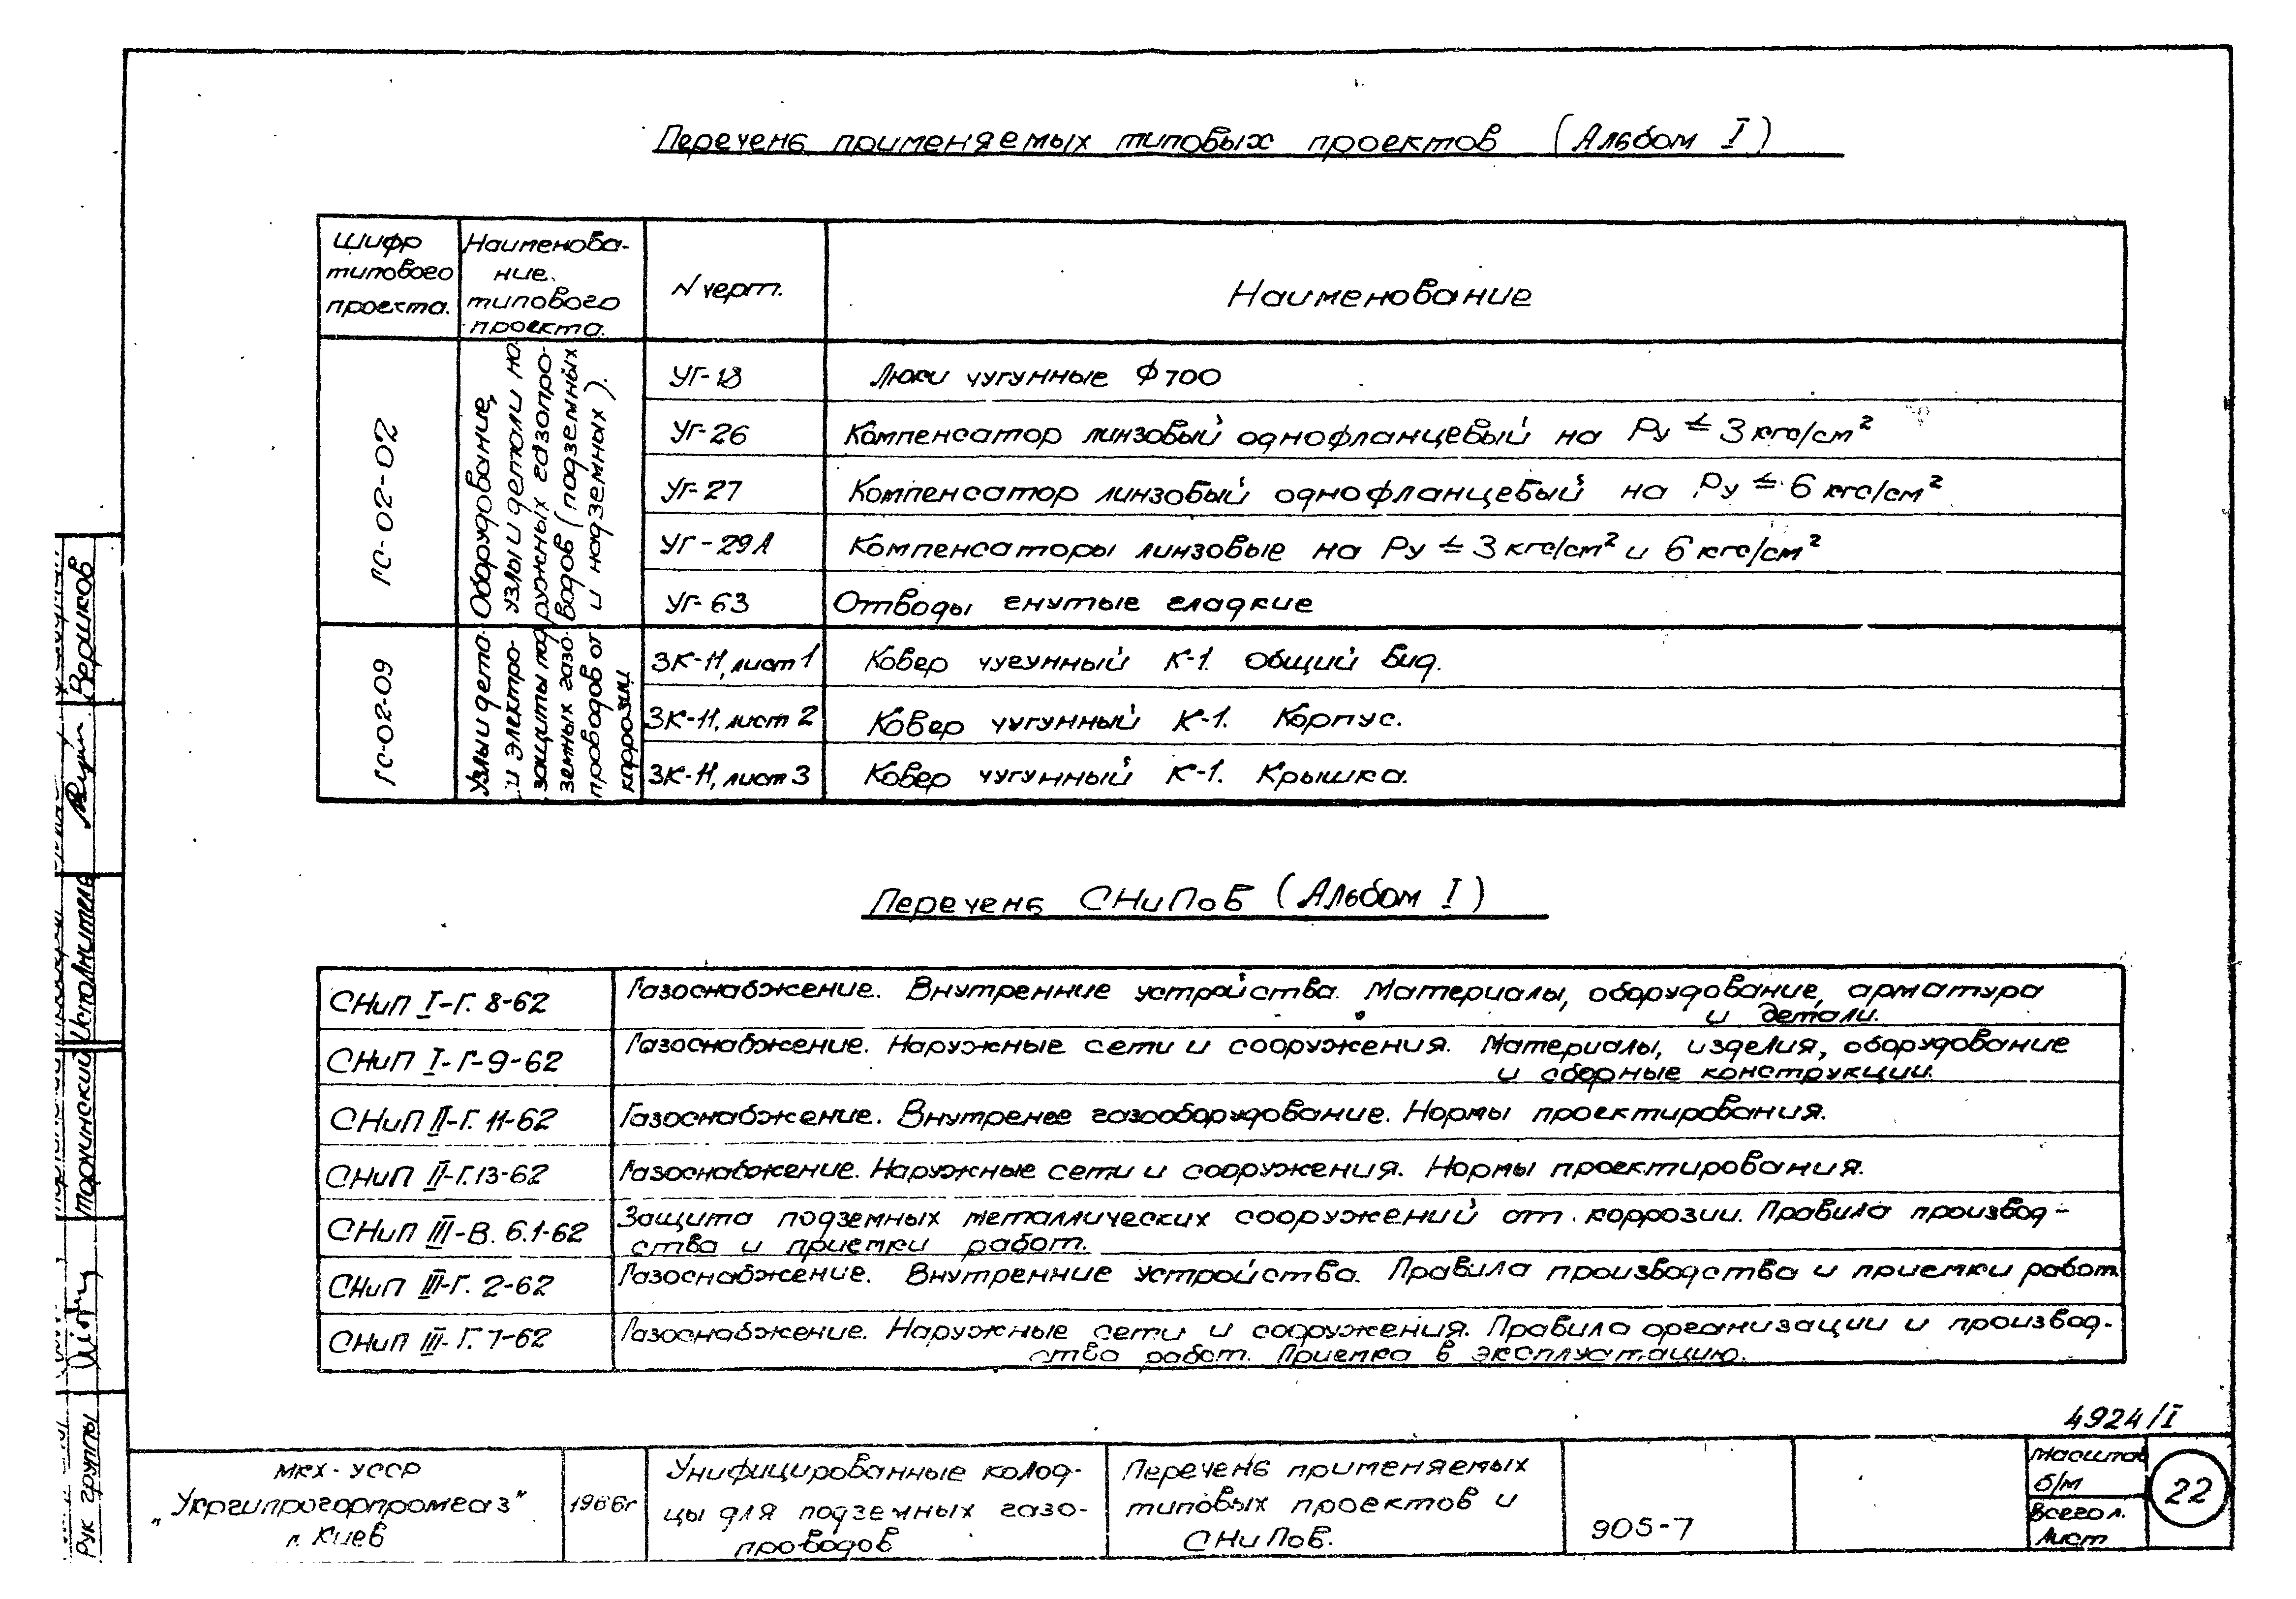 Перечень применяемых типовых проектов (Альбом I)
Шифр
типового
проекта.
Наименова-
ние
типового
проекта.
N черт.
Наименование
ГС-02-02
Оборудование,
узлы и детали на-
ружных газопро-
водов (подземных
и надземных).
УГ-18
Люки чугунные Ф 700
УГ-26
Компенсатор линзовый однофланцевый на Ру ≤ 3 кгс/см²
УГ-27
Компенсатор линзовый однофланцевый на Ру ≤ 6 кгс/см²
УГ-29А
Компенсаторы линзовые на Ру ≤ 3 кгс/см² и 6 кгс/см²
УГ-63
Отводы гнутые гладкие
ГС-02-09
Узлы и дета-
и электро-
защиты под
земных газо-
проводов от
коррозии
ЗК-11, лист 1
Ковер чугунный К-1. Общий вид.
ЗК-11, лист 2
Ковер чугунный К-1. Корпус.
ЗК-11, лист 3
Ковер чугунный К-1. Крышка.
Перечень СНиПов (Альбом I)
СНиП I-Г. 8-62
Газоснабжение. Внутренние устройства. Материалы, оборудование, арматура
и детали.
СНиП I-Г-9-62
Газоснабжение. Наружные сети и сооружения. Материалы, изделия, оборудование
и сборные конструкции.
СНиП II-Г. 11-62
Газоснабжение. Внутренее газооборудование. Нормы проектирования.
СНиП II-Г.13-62
Газоснабжение. Наружные сети и сооружения. Нормы проектирования.
СНиП III-В. 6.1-62
Защита подземных металлических сооружений от коррозии. Правила производ-
ства и приемки работ.
СНиП III-Г. 2-62
Газоснабжение. Внутренние устройства. Правила производства и приемки работ.
СНиП III-Г. 7-62
Газоснабжение. Наружные сети и сооружения. Правила организации и производ-
ства работ. Приемка в эксплуатацию.
4924/I
МКХ-УССР
„Укргипрогорпромгаз"
г. Киев
1966г
Унифицированные колод-
цы для подземных газо-
проводов
Перечень применяемых
типовых проектов и
СНиПов.
905-7
Масштаб
б/м
Всего л.
Лист
22
Вершков
Исполнитель
Торчинский
Рук группы